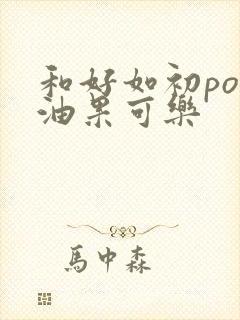 和好如初po
油果可樂
馬中森